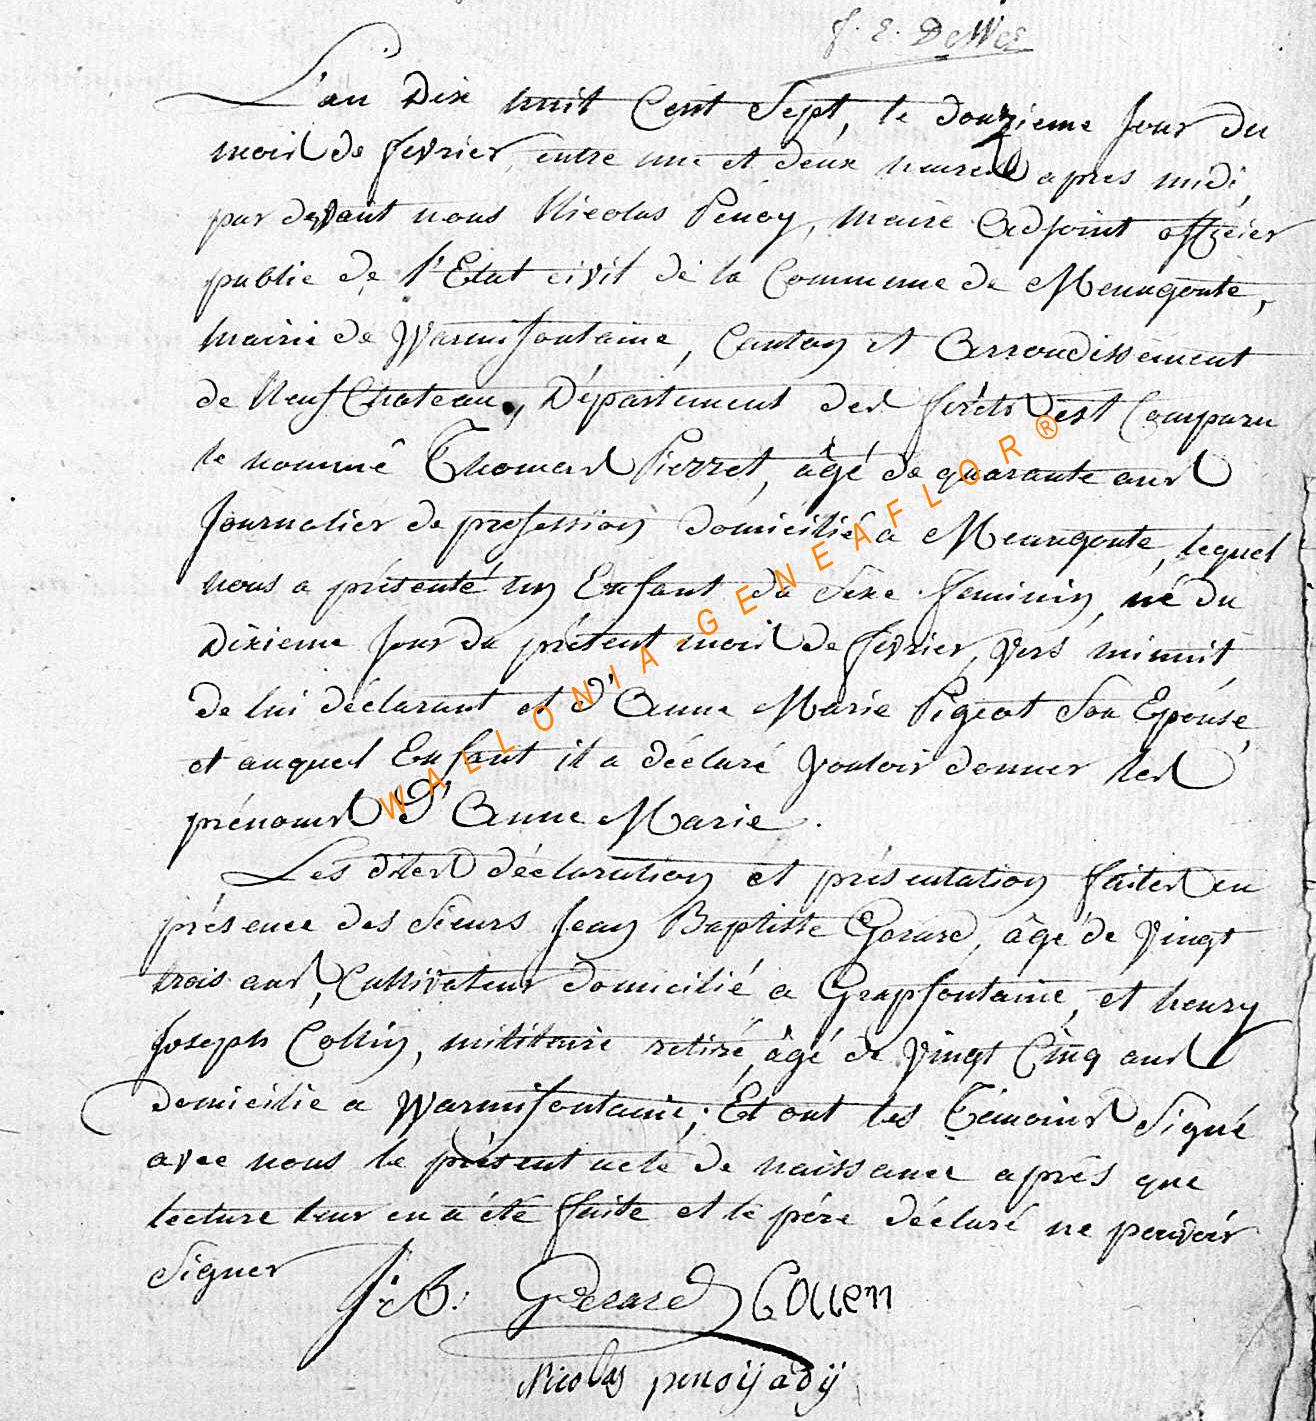 J. E. DeWez
L'an Dix huit Cent Sept, le douzieme Jour du
mois de fevrier, entre une et deux heures apres midi,
par devant nous Nicolas Penoy, maire Adjoint officier
public de l'Etat civil de la Commune de Menugoutte,
mairie de Warmifontaine, Canton et Arrondissement
de Neufchateau, Département des forêts est Comparu
le nommé Thomas Pierret, âgé de quarante ans
Journalier de profession domicilié a Menugoutte, lequel
nous a présenté un Enfant du Sexe feminin, né du
dixieme Jour du présent mois de fevrier, vers minuit
de lui déclarant et d'Anne Marie Pigeot Son Epouse,
et auquel Enfant il a déclaré vouloir donner les
prénoms d'Anne Marie.
Les dites déclaration et présentation faites en
présence des Sieurs Jean Baptiste Gerard, âgé de vingt
trois ans, Cultivateur domicilié a Grapfontaine, et henry
Joseph Collin, militaire retiré, âgé de vingt Cinq ans
domicilie a Warmifontaine; Et ont les Témoins Signé
avec nous le présent acte de naissance aprés que
lecture leur en a été faite et le pére déclaré ne pouvoir
Signer
J: B: Gerard Collen
Nicolas penoij adij
WALLONIA-GENEAFLOR®